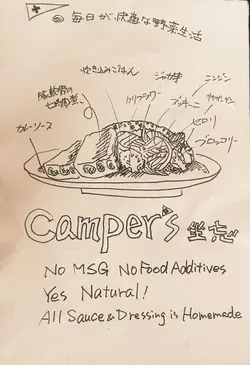 毎日が快適な野菜生活
炊き込みごはん
ジャガ芋
ニンジン
豚軟骨の
カリフラワー
ズッキーニ
サヤインゲン
セロリ
カレーソース
ブロッコリー
Camper's
No MSG No Food Additives
Yes Natural!
All Sauce & Dressing is Homemade